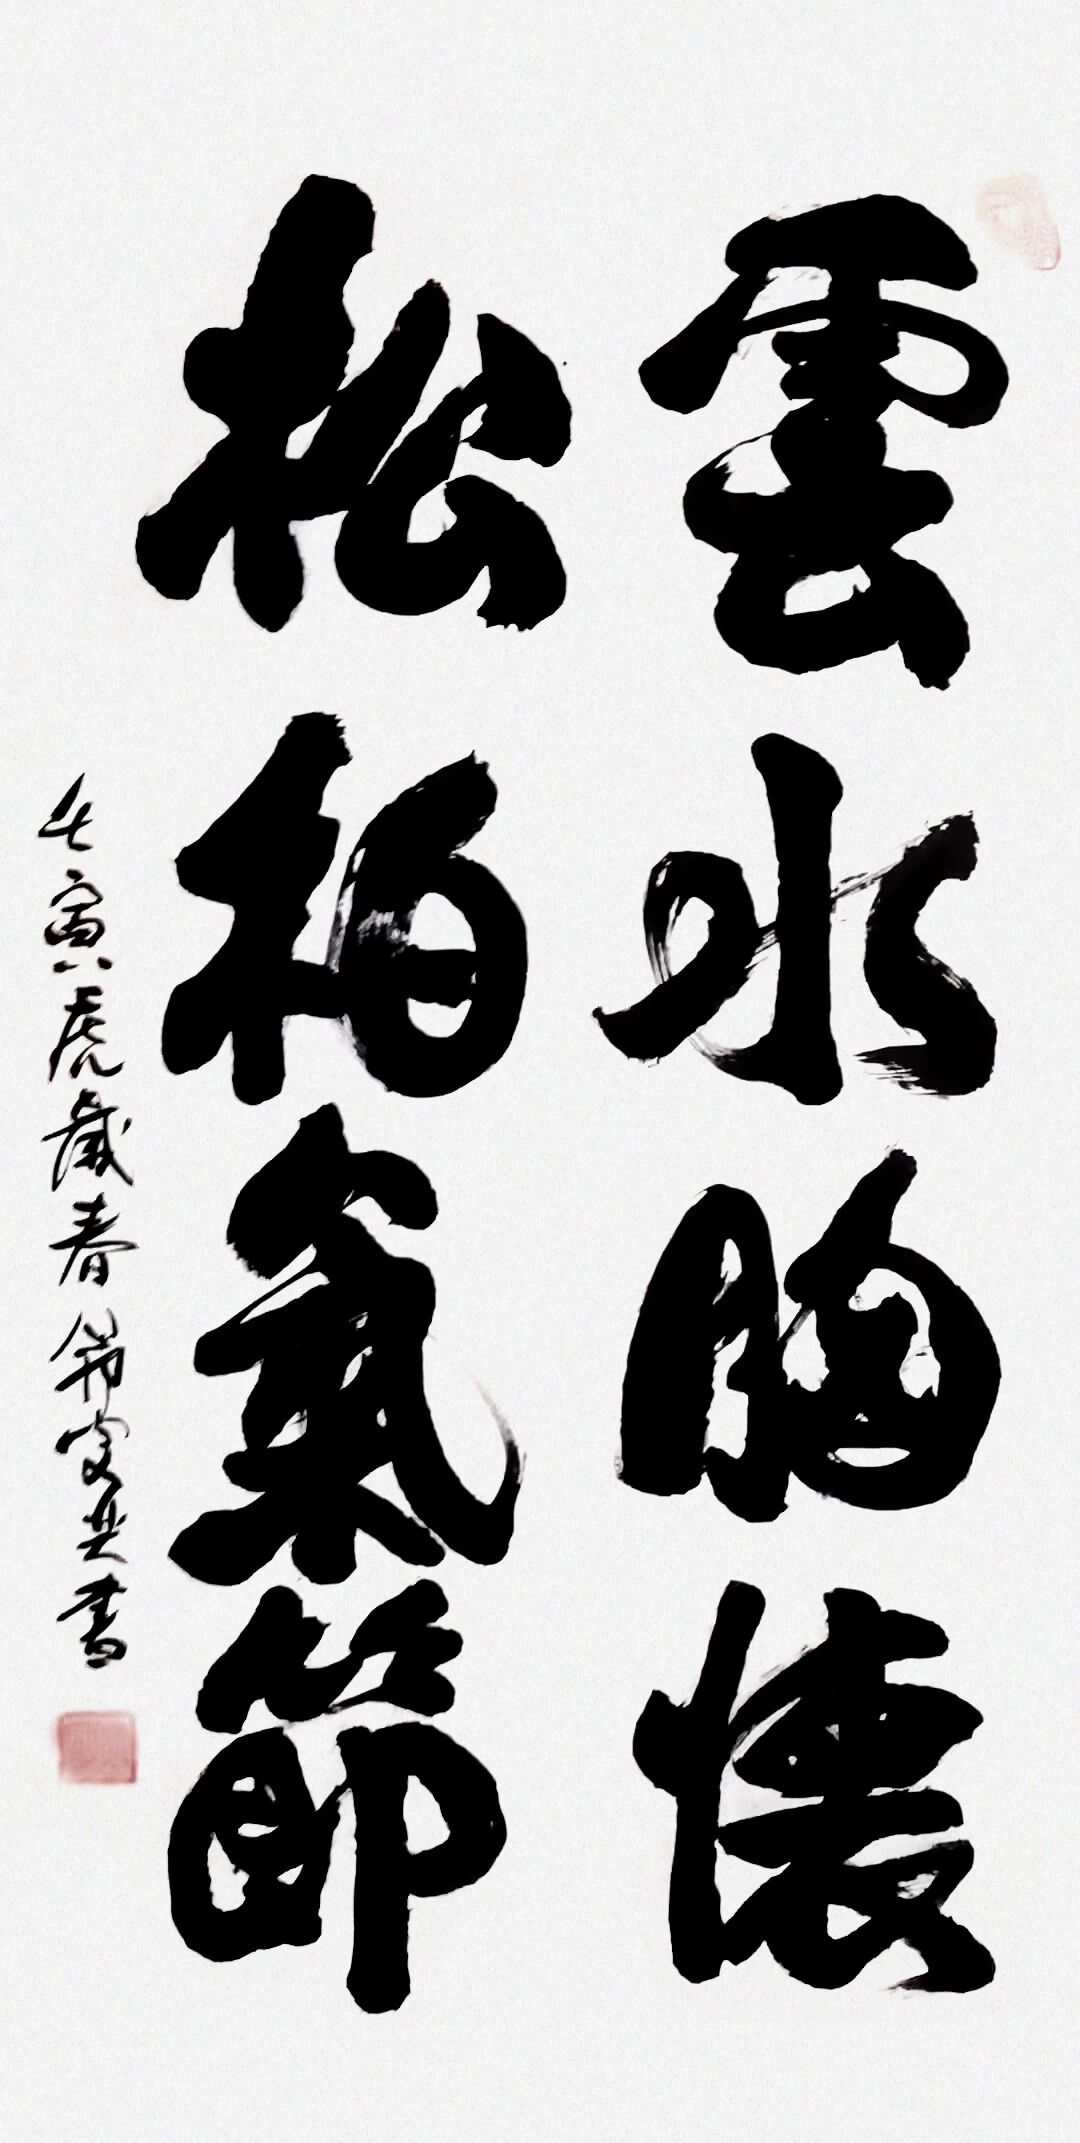 雲水胸懷
松柏氣節
壬寅虎歲春節安書